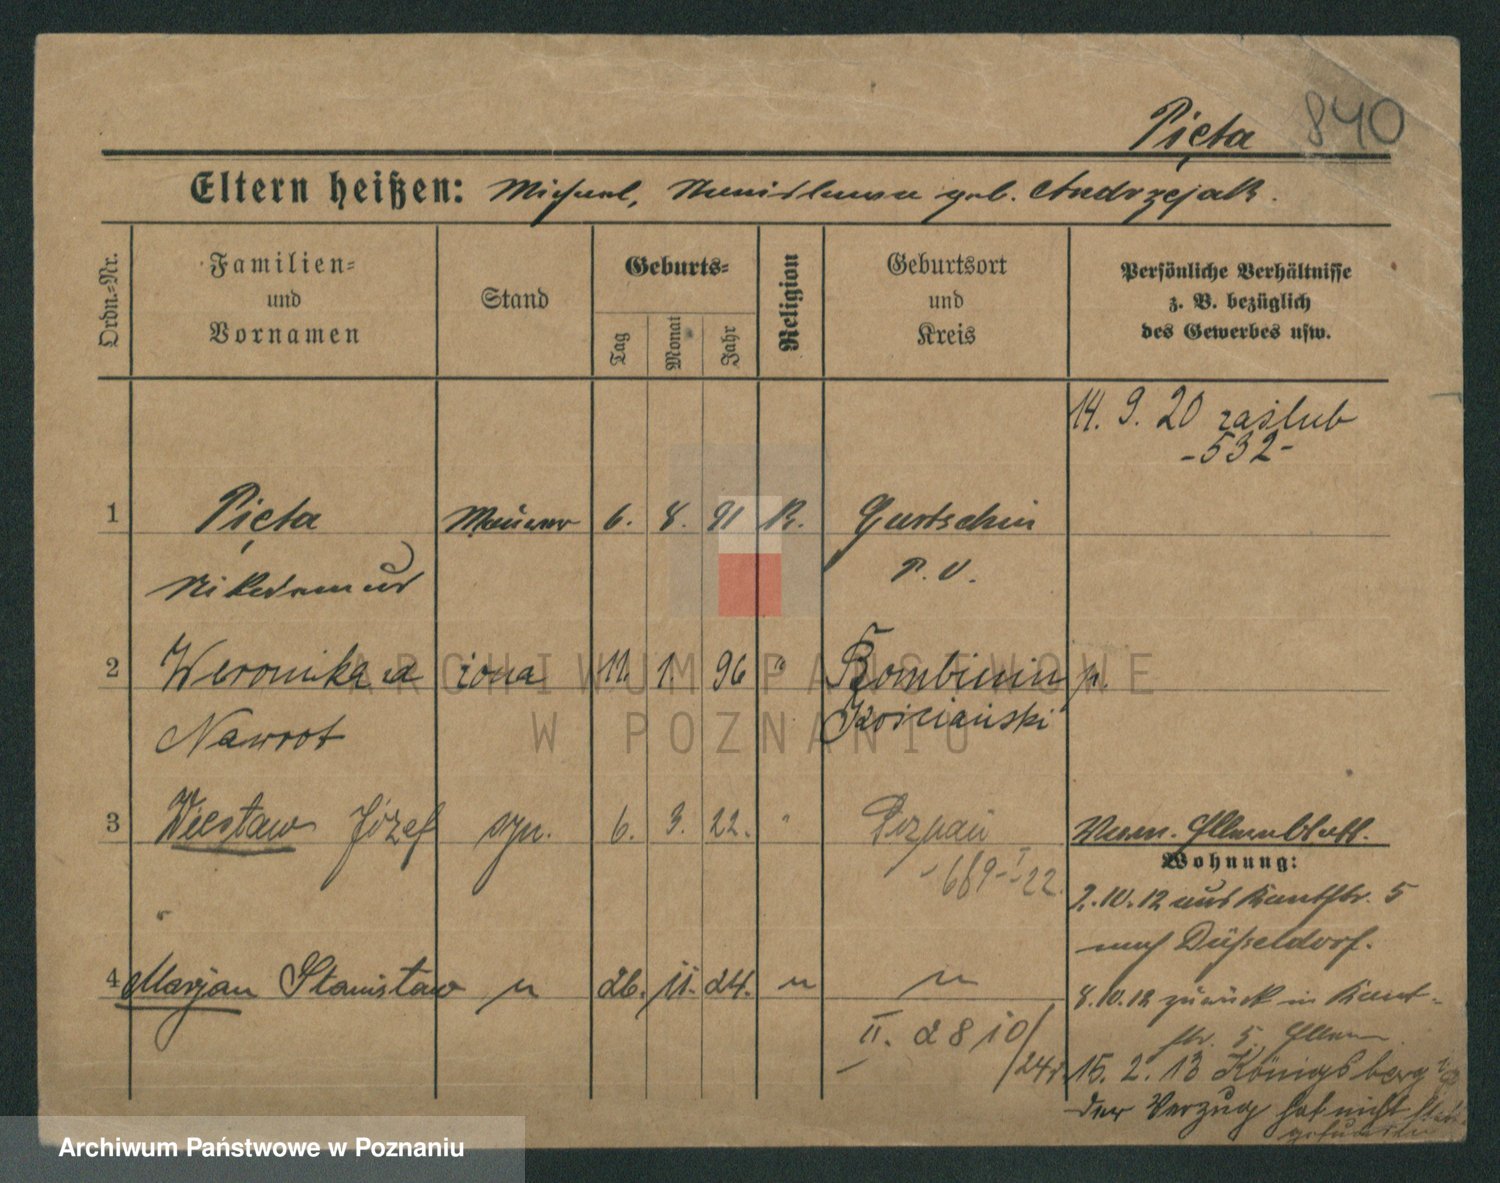 Pięta 840
Eltern heißen: Michael, Stanislawa geb. Andrzejak.
Ordn.-Nr.
Familien-
und
Vornamen
Stand
Geburts-
Tag
Monat
Jahr
Religion
Geburtsort
und
Kreis
Persönliche Verhältnisse
z. B. bezüglich
des Gewerbes usw.
14. 9. 20 zaślub
-532-
1 Pięta Maurer 6. 8. 91 K. Gurtschin
Nikodemus P. O.
2 Weronika d żona 11. 1. 96 " Bombinin p.
Nawrot Kościański
3 Wiesław Józef syn. 6. 3. 22. " Poznań
689-I 22.
4 Marjan Stanisław " 26. 11. 24. " "
II. 2810/
/24.
Verm. Elternblatt.
Wohnung:
2.10.12 aus Kantstr. 5
nach Düsseldorf.
8.10.12 zurück in Kant-
str. 5. Eltern
15. 2. 13 Königsberg i/P
Der Verzug hat nicht statt-
gefunden
ARCHIWUM PAŃSTWOWE
W POZNANIU
Archiwum Państwowe w Poznaniu